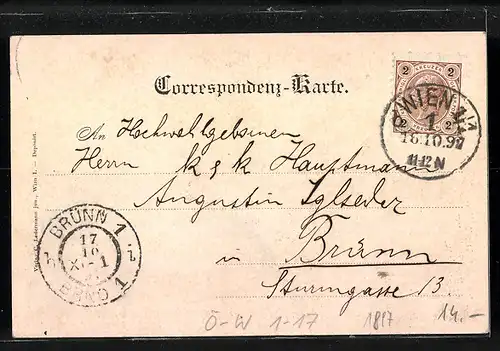 Correspondenz-Karte.
2 KREUZER 2
WIEN 1/1
1
16.10.97
11-12 N
An Hochwohlgeboren
Herrn k & k Hauptmann
Augustin Iglseder
in Brünn
Sturmgasse 13.
BRÜNN 1
17
10
BRNO 1
Ö-W 1-17 1897 14.-